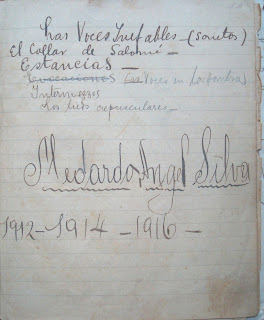 Las Voces Inefables - (sonetos)
El Collar de Salomé -
Estancias -
Evocaciones (Las Voces en la Sombra)
Intermezzos
Los                crepusculares -
Medardo Angel Silva
1912 - 1914 - 1916 -